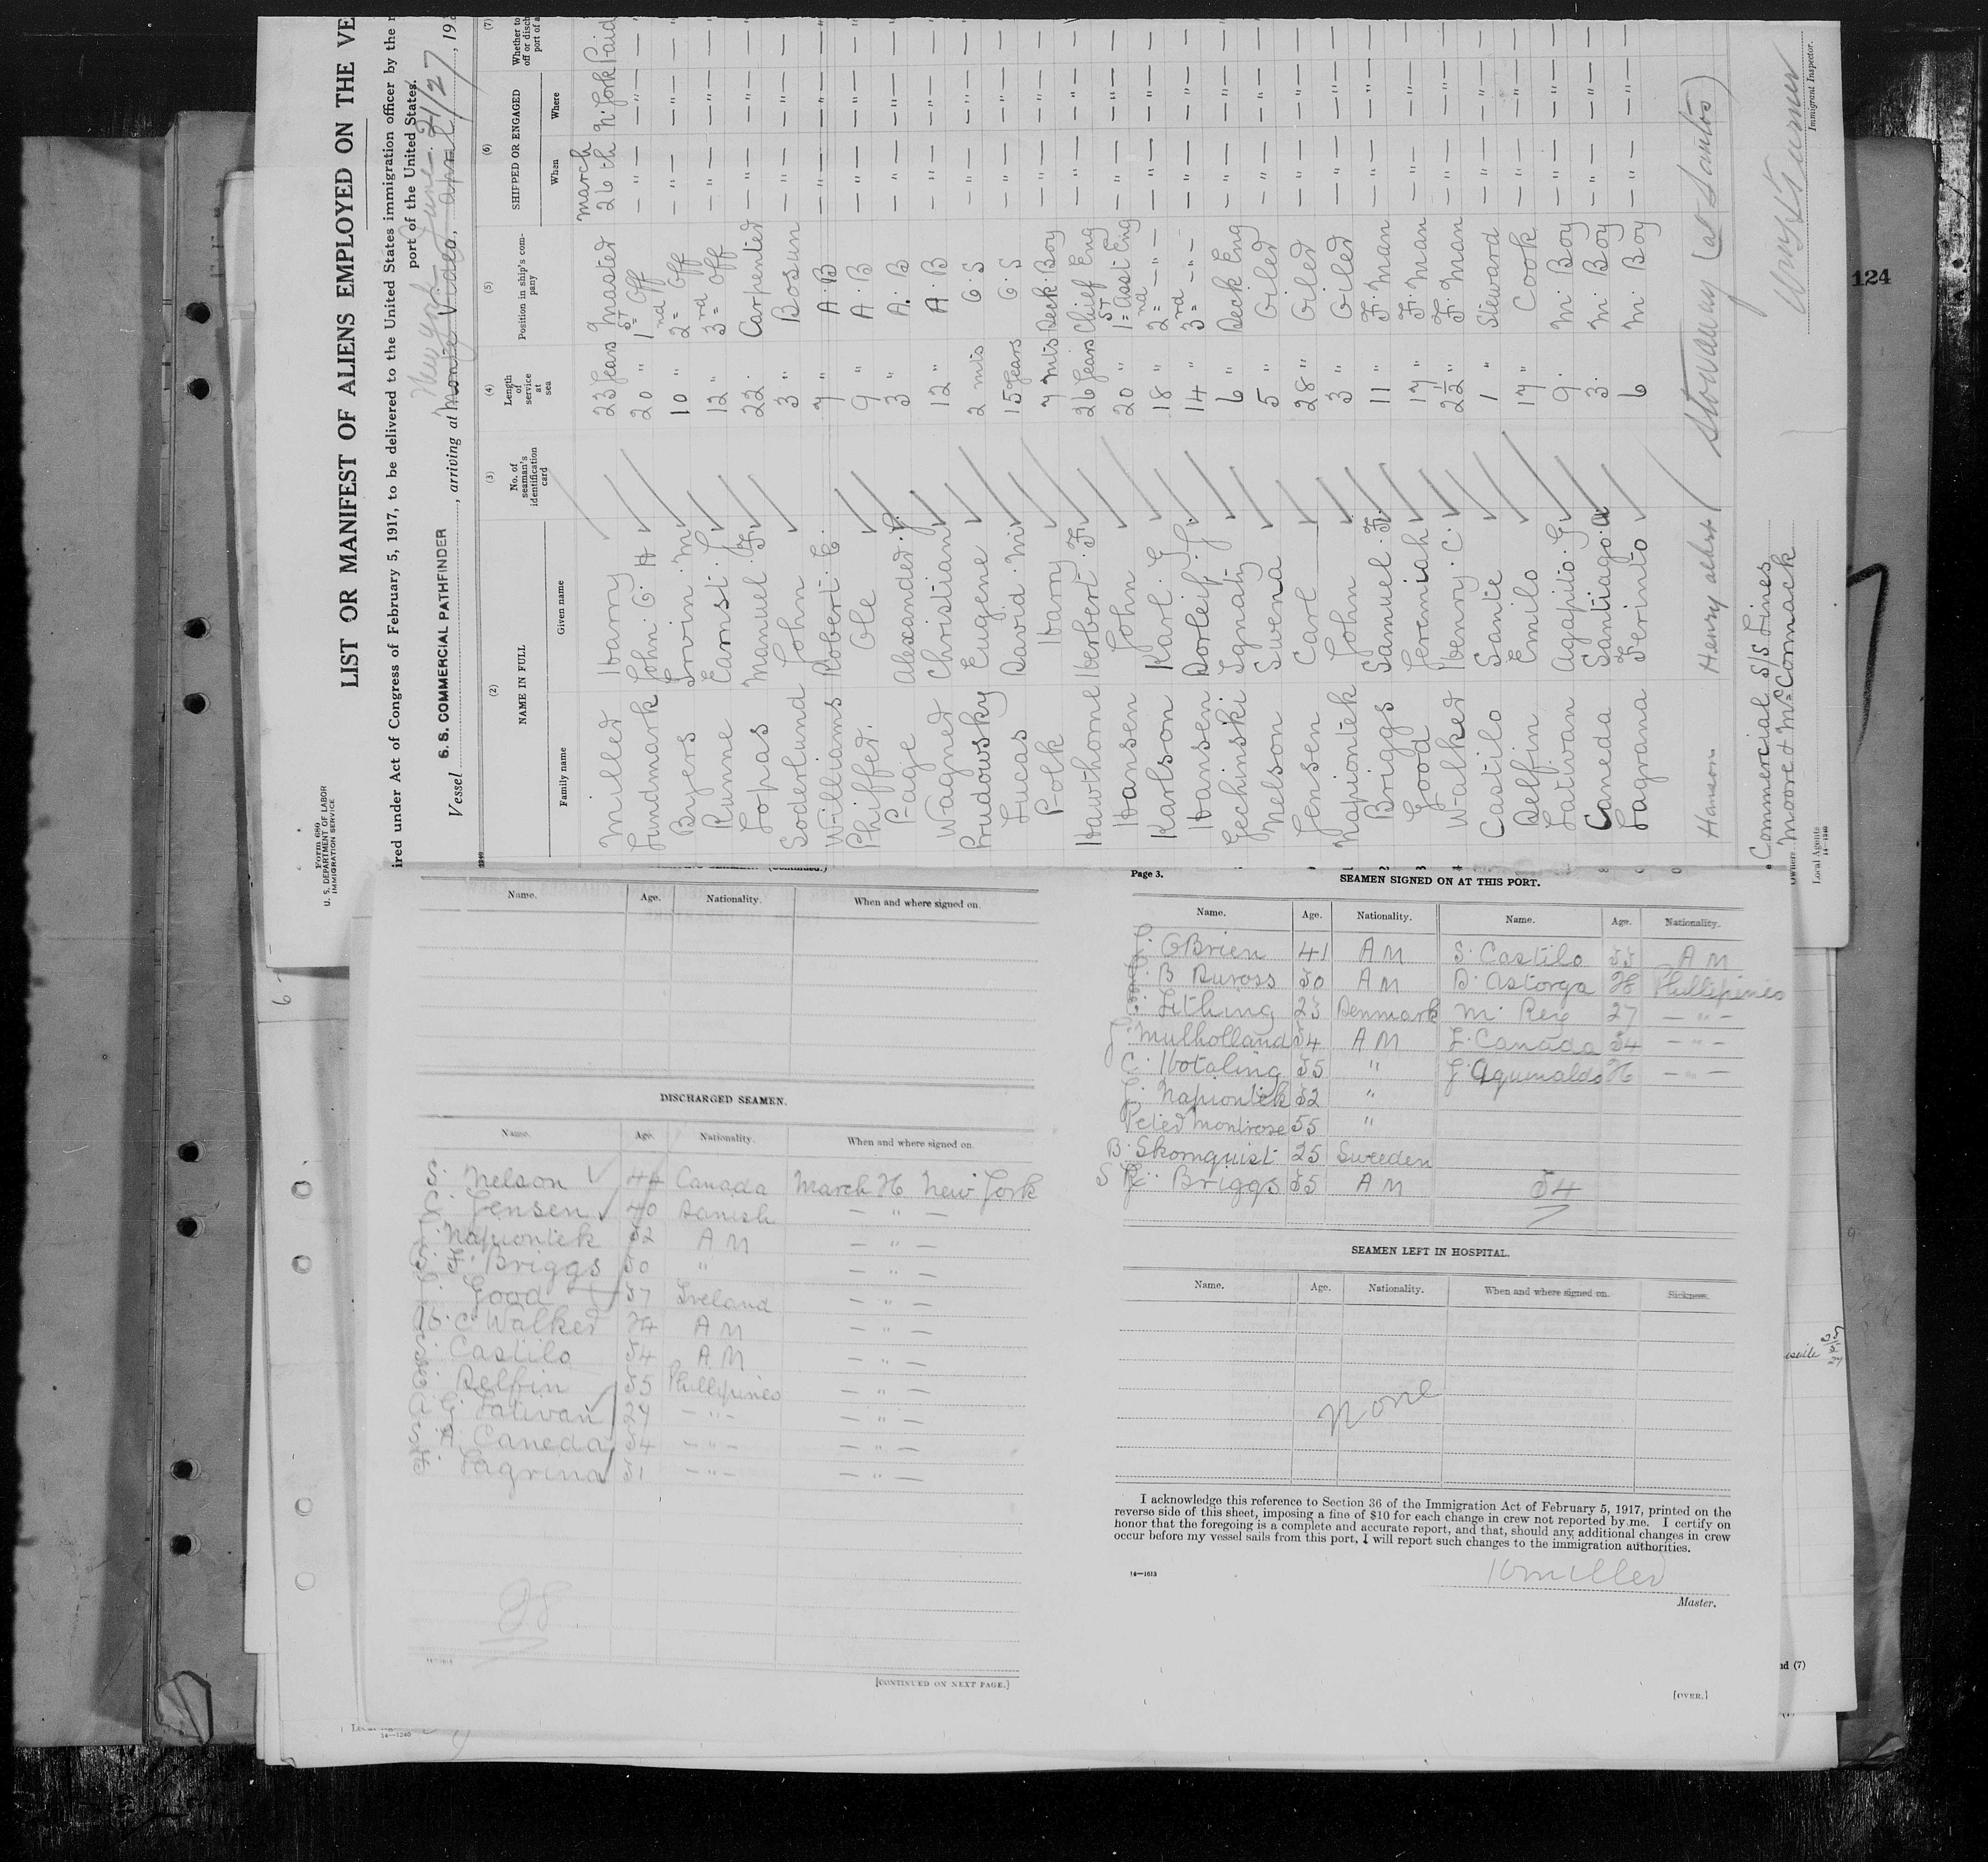 Form 680
U. S. DEPARTMENT OF LABOR
IMMIGRATION SERVICE
LIST OR MANIFEST OF ALIENS EMPLOYED ON THE VE
ired under Act of Congress of February 5, 1917, to be delivered to the United States immigration officer by the
port of the United States.
New York June 21/27
Vessel S. S. COMMERCIAL PATHFINDER, arriving at Monte Video, April, 19
(2) (3) (4) (5) (6) (7)
NAME IN FULL No. of seaman's identification card Length of service at sea Position in ship's company SHIPPED OR ENGAGED Whether to
Family name Given name When Where
Miller Harry 23 Years Master March 26th N. York Paid
Lundmark John G. H 20 " 1st Off — " — — " —
Byers Irwin. M 10 " 2nd Off — " — — " —
Runne Earnst. L. 12 " 3rd Off — " — — " —
Lopas Manuel. F. 22 . Carpenter — " — — " —
Soderlund John 3 " Bosun — " — — " —
Williams Robert. E. 7 " A. B — " — — " —
Phiffer. Ole 9 " A. B — " — — " —
Page Alexander. J. 3 " A. B — " — — " —
Wagner Christian 12 " A. B — " — — " —
Prudowsky Eugene 2 mts O. S — " — — " —
Lucas David. M 15 Years O. S — " — — " —
Polk Harry 7 mts Deck Boy — " — — " —
Hawthorne Herbert. F. 26 Years Chief Eng — " — — " —
Hansen John 20 " 1st Asst Eng — " — — " —
Karlson Karl. G 18 " 2nd — " — — " — — " —
Hansen Dorleif. J. 14 " 3rd — " — — " — — " —
Gechinski Ignaty 6 " Deck Eng — " — — " —
Nelson Swena 5 " Oiler — " — — " —
Jensen Carl 28 " Oiler — " — — " —
Napiontek John 3 " Oiler — " — — " —
Briggs Samuel. F. 11 " F. Man — " — — " —
Good Jeremiah 17 " F. Man — " — — " —
Walker Henry. C. 22 1/2 " F. Man — " — — " —
Castilo Sante 1 " Steward — " — — " —
Delfin Emilo 17 " Cook — " — — " —
Lativan Agapito. G. 9 . M. Boy — " — — " —
Caneda Santiago. A 3 . M. Boy — " — — " —
Lagrana Ferinto 6 M. Boy — " — — " —
Hanson Henry Albert Stowaway (at Santos)
Commercial S/S. Lines.
Owners
Moore & McComack
Local Agents
14—1240
Immigrant Inspector.
124
Name. Age. Nationality. When and where signed on.
DISCHARGED SEAMEN.
Name. Age. Nationality. When and where signed on.
S. Nelson 44 Canada March 26 New York
C. Jensen 40 Danish — " —
J. Napiontek 52 A M — " —
S. F. Briggs 50 " — " —
J. Good 57 Ireland — " —
H. C. Walker 24 A M — " —
S. Castilo 54 A M — " —
E. Delfin 35 Phillipines — " —
A. G. Lativan 29 — " — — " —
S. A. Caneda 34 — " — — " —
F. Lagrina 31 — " — — " —
28
[CONTINUED ON NEXT PAGE.]
Page 3.
SEAMEN SIGNED ON AT THIS PORT.
Name. Age. Nationality. Name. Age. Nationality.
J. OBrien 41 A M S. Castilo 55 A M
B Duross 50 A M D. Astorga 28 Phillipines
Lthing 23 Denmark M. Reie 27 — " —
J. Mulholland 54 A M L. Canada 34 — " —
C. Hotaling 55 " J. Aguinaldo 26 — " —
J. Napiontek 52 "
Peter Montrose 55 "
B. Skornquist 25 Sweeden
S F. Briggs 55 A M 34
SEAMEN LEFT IN HOSPITAL.
Name. Age. Nationality. When and where signed on. Sickness.
None
I acknowledge this reference to Section 36 of the Immigration Act of February 5, 1917, printed on the
reverse side of this sheet, imposing a fine of $10 for each change in crew not reported by me. I certify on
honor that the foregoing is a complete and accurate report, and that, should any additional changes in crew
occur before my vessel sails from this port, I will report such changes to the immigration authorities.
14—1613
H Miller
Master.
[OVER.]
14—1240
nd (7)